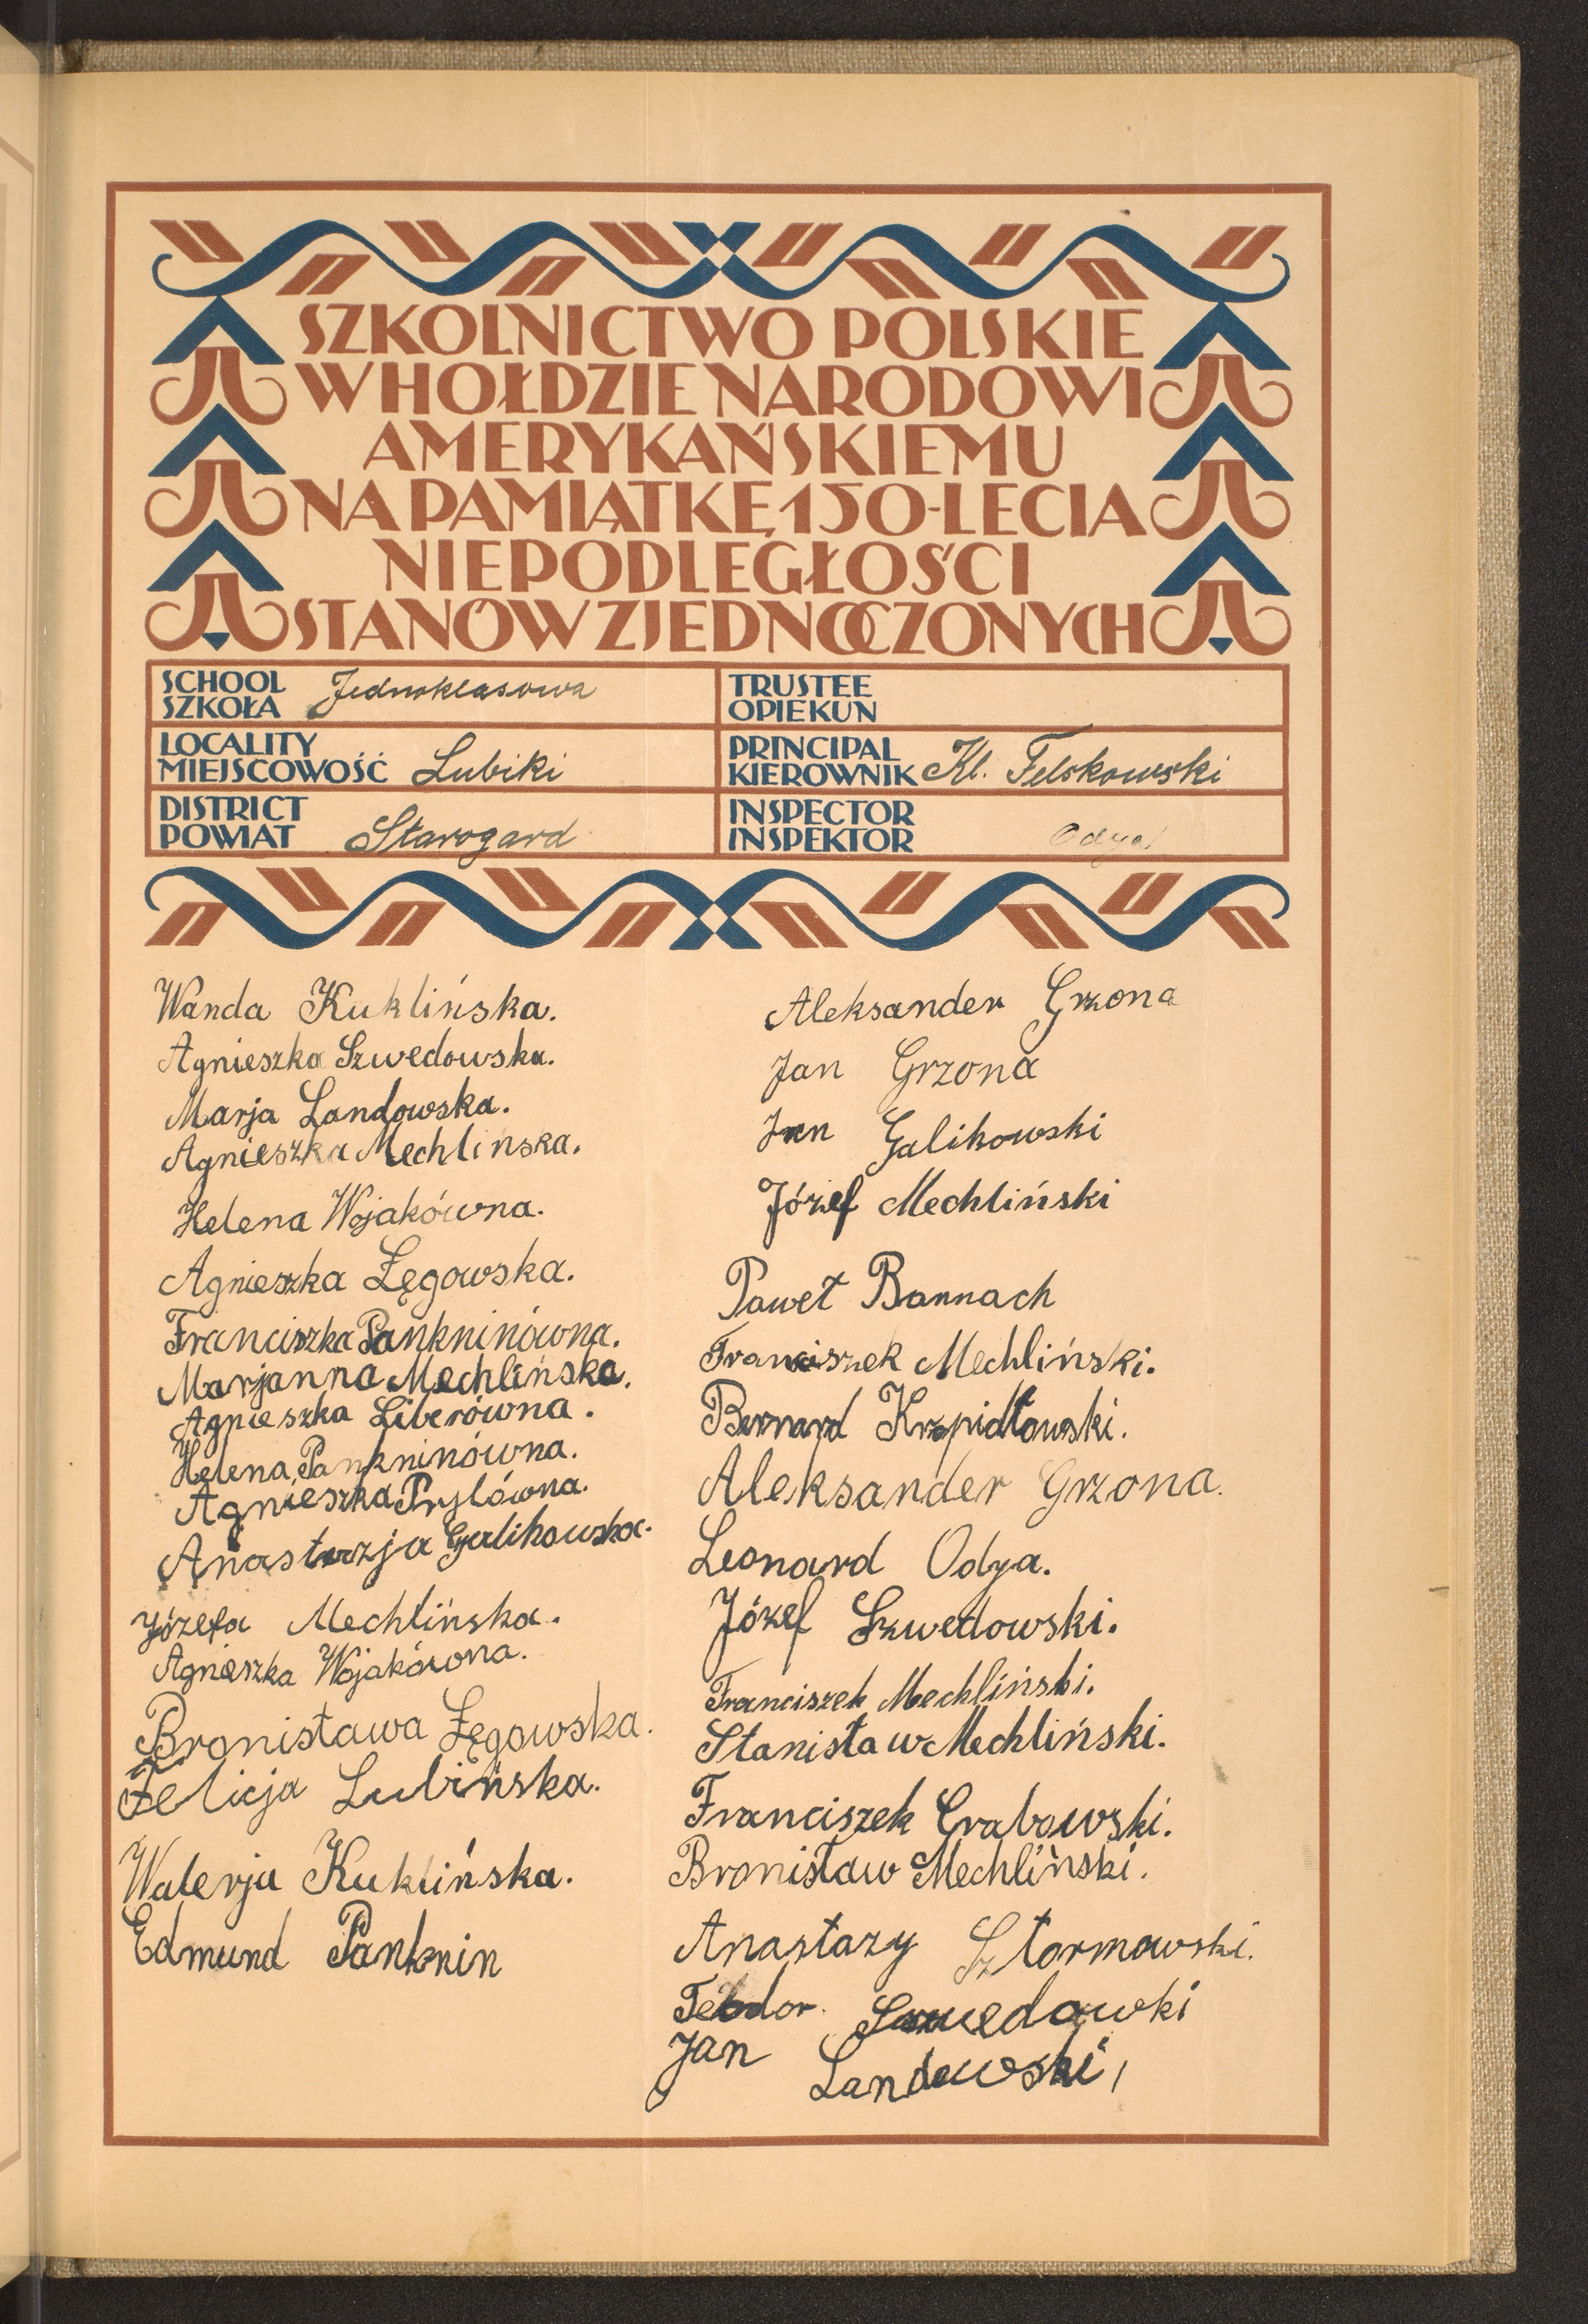 SZKOLNICTWO POLSKIE
W HOŁDZIE NARODOWI
AMERYKAŃSKIEMU
NA PAMIĄTKĘ 150-LECIA
NIEPODLEGŁOŚCI
STANÓW ZJEDNOCZONYCH
SCHOOL
SZKOŁA Jednoklasowa
TRUSTEE
OPIEKUN
LOCALITY
MIEJSCOWOŚĆ Lubiki
PRINCIPAL
KIEROWNIK Kl. Felskowski
DISTRICT
POWIAT Starogard
INSPECTOR
INSPEKTOR Odya
Wanda Kuklińska.
Agnieszka Szwedowska.
Marja Landowska.
Agnieszka Mechlińska.
Helena Wojakówna.
Agnieszka Łęgowska.
Franciszka Pankninówna.
Marjanna Mechlińska.
Agnieszka Liberówna.
Helena Pankninówna.
Agnieszka Prylówna.
Anastazja Galikowska.
Józefa Mechlińska.
Agnieszka Wojakówna.
Bronisława Łęgowska.
Felicja Lubińska.
Walerja Kuklińska.
Edmund Panknin
Aleksander Grzona
Jan Grzona
Jan Galikowski
Józef Mechliński
Paweł Bannach
Franciszek Mechliński.
Bernard Krzpidłowski.
Aleksander Grzona.
Leonard Odya.
Józef Szwedowski.
Franciszek Mechliński.
Stanisław Mechliński.
Franciszek Grabowski.
Bronisław Mechliński.
Anastazy Sztormowski.
Teodor. Szwedowki
Jan Landowski,